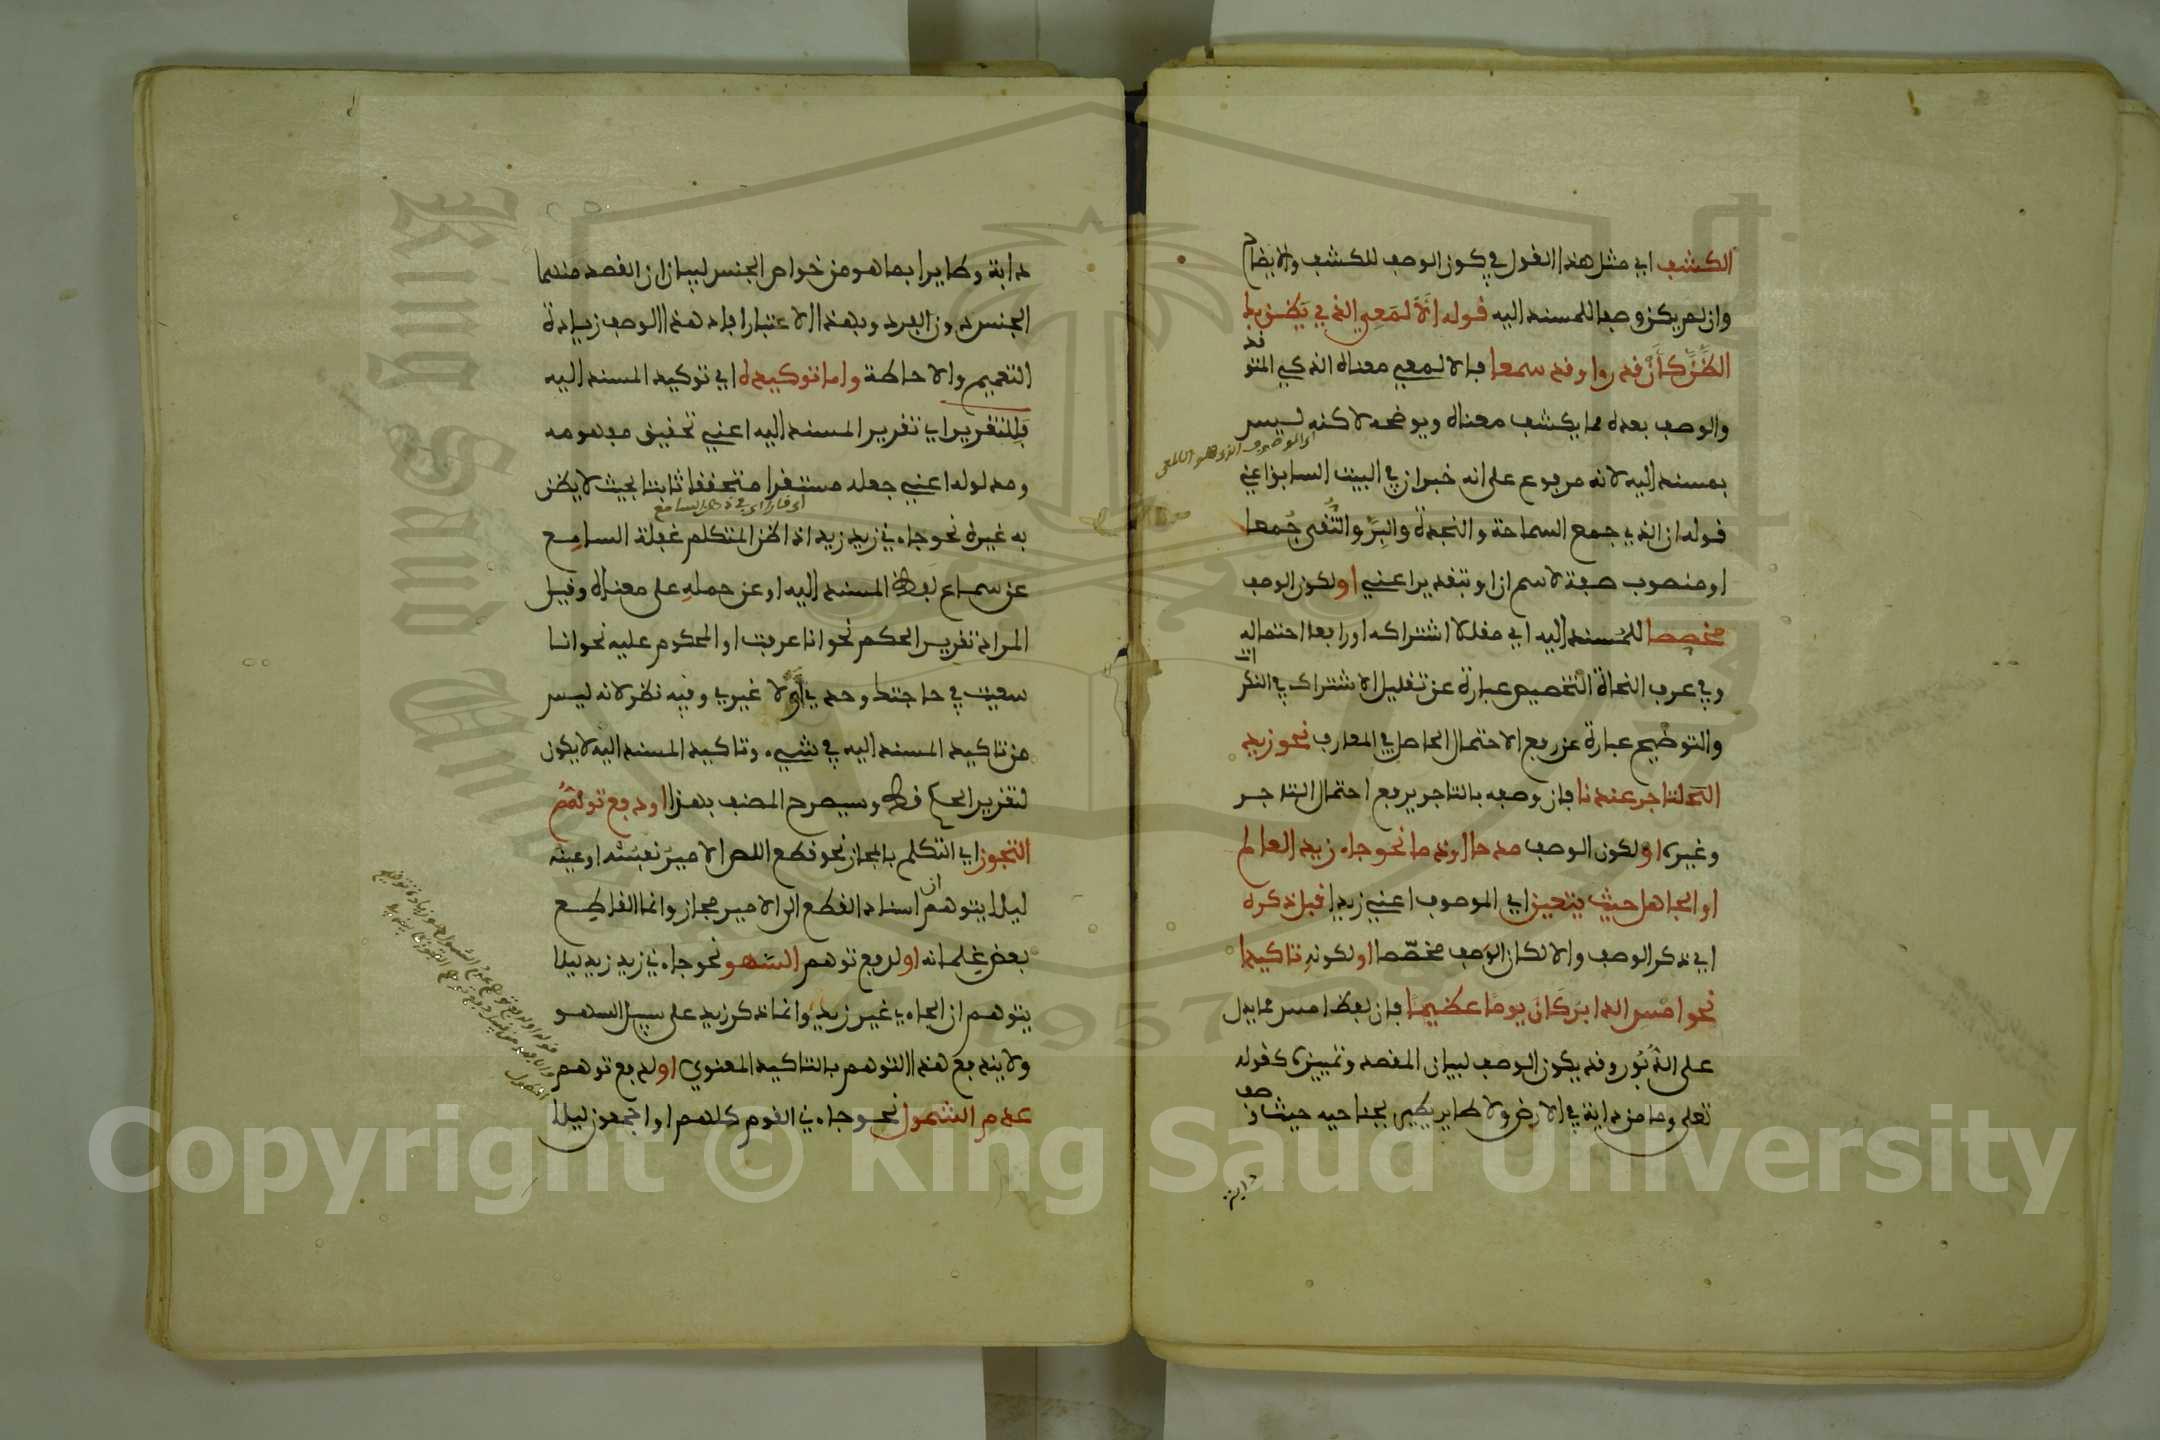 الكشف اي مثل هذا القول في كون الوصف للكشف والايضاح
وان لم يكن وصفا للمسند اليه قوله الألمعي الذي يظن بك
الظن كأن قد رءا وقد سمعا فالالمعي معناه الذكي المتوقد
والوصف بعده مما يكشف معناه ويوضحه لاكنه ليس
اي الموصوف الذي هو الالمعي
بمسند اليه لانه مرفوع على انه خبر ان في البيت السابق اعني
قوله ان الذي جمع السماحة والنجدة والبر والتقى جمعا
او منصوب صفة لاسم ان او بتقدير اعني او لكون الوصف
مخصصا للمسند اليه اي مقللا اشتراكه او رافعا احتماله
وفي عرف النحاة التخصيص عبارة عن تقليل الاشتراك في النكرات
والتوضيح عبارة عن رفع الاحتمال الحاصل في المعارف نحو زيد
التاجر عندنا فان وصفه بالتاجر يرفع احتمال التاجر
وغيره او لكون الوصف مدحا او ذما نحو جاءني زيد العالم
او الجاهل حيث يتعين اي الموصوف اعني زيدا قبل ذكره
اي ذكر الوصف والا لكان الوصف مخصصا او لكونه تاكيدا
نحو امس الدابر كان يوما عظيما فان لفظ امس مما يدل
على الدبور وقد يكون الوصف لبيان المقصد وتمييزه كقوله
تعلى وما من دابة في الارض ولا طاير يطير بجناحيه حيث وصف
دابة
دابة وطايرا بما هو من خواص الجنس لبيان ان القصد منهما
الجنس دون الفرد وبهذا الاعتبار افاد هذا الوصف زيادة
التعميم والاحاطة واما توكيده اي توكيد المسند اليه
فللتقرير اي تقرير المسند اليه اعني تحقيق مفهومه
ومدلوله اعني جعله مستقرا متحققا ثابتا بحيث لا يظن
به غيره نحو جاءني زيد زيد اذا ظن المتكلم غفلة السامع
عن سماع لفظ المسند اليه او عن حمله على معناه وقيل
المراد تقرير الحكم نحو انا عرفت او المحكوم عليه نحو انا
سعيت في حاجتك وحدي او لا غيري وفيه نظر لانه ليس
من تاكيد المسند اليه في شيء وتاكيد المسند اليه لا يكون
لتقرير الحكم قط وسيصرح المصنف بهذا او دفع توهم
التجوز اي التكلم بالمجاز نحو قطع اللص الامير نفسه او عينه
ليلا يتوهم ان اسناد القطع الى الامير مجاز وانما القاطع
بعض غلمانه او لدفع توهم السهو نحو جاءني زيد زيد ليلا
يتوهم ان الجاءي غير زيد وانما ذكر زيد على سبيل السهو
ولا يندفع هذا التوهم بالتاكيد المعنوي او لدفع توهم
عدم الشمول نحو جاءني القوم كلهم او اجمعون ليلا
King Saud University
1957
Copyright © King Saud University